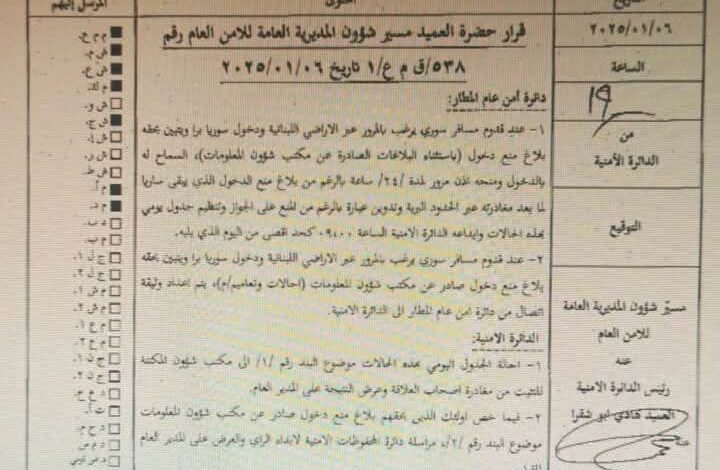 التاريخ
المحتوى
المرسل إليهم
٢٠٢٥/٠١/٠٦
الساعة
١٩
من
الدائرة الأمنية
التوقيع
مسيّر شؤون المديرية العامة
للامن العام
عنه
رئيس الدائرة الامنية
العميد هادي ابو شقرا
قرار حضرة العميد مسير شؤون المديرية العامة للامن العام رقم
٥٣٨/ق م ع/١ تاريخ ٢٠٢٥/٠١/٠٦
دائرة أمن عام المطار:
١- عند قدوم مسافر سوري يرغب بالمرور عبر الاراضي اللبنانية ودخول سوريا برا ويتبين بحقه
بلاغ منع دخول (باستثناء البلاغات الصادرة عن مكتب شؤون المعلومات)، السماح له
بالدخول ومنحه اذن مرور لمدة /٢٤/ ساعة بالرغم من بلاغ منع الدخول الذي يبقى ساريا
لما بعد مغادرته عبر الحدود البرية وتدوين عبارة بالرغم من المنع على الجواز وتنظيم جدول يومي
بهذه الحالات وايداعه الدائرة الامنية الساعة ٠٩،٠٠ كحد اقصى من اليوم الذي يليه.
٢- عند قدوم مسافر سوري يرغب بالمرور عبر الاراضي اللبنانية ودخول سوريا برا ويتبين بحقه
بلاغ منع دخول صادر عن مكتب شؤون المعلومات (احالات وتعاميم/م)، يتم اعداد وثيقة
اتصال من دائرة امن عام المطار الى الدائرة الامنية.
الدائرة الأمنية:
١- احالة الجدول اليومي بهذه الحالات موضوع البند رقم /١/ الى مكتب شؤون المكننة
للتثبت من مغادرة اصحاب العلاقة وعرض النتيجة على المدير العام.
٢- فيما خص اولئك الذين بحقهم بلاغ منع دخول صادر عن مكتب شؤون المعلومات
موضوع البند رقم /٢/، مراسلة دائرة المحفوظات الامنية لابداء الراي والعرض على المدير العام
م م ع.
ش م.
ش ع.
م ك.
ش و.
ش ج.
ش أ.
ش ر.
ش ط.
م أ.
م د.
د ب.
م ب.
ج ل ١.
ج ل ٢.
م ش ١.
م ش ٢.
م ع ١.
م ع ٢.
ج ن ١.
ج ن ٢.
د ع ع.
د ح م.
د م ص.